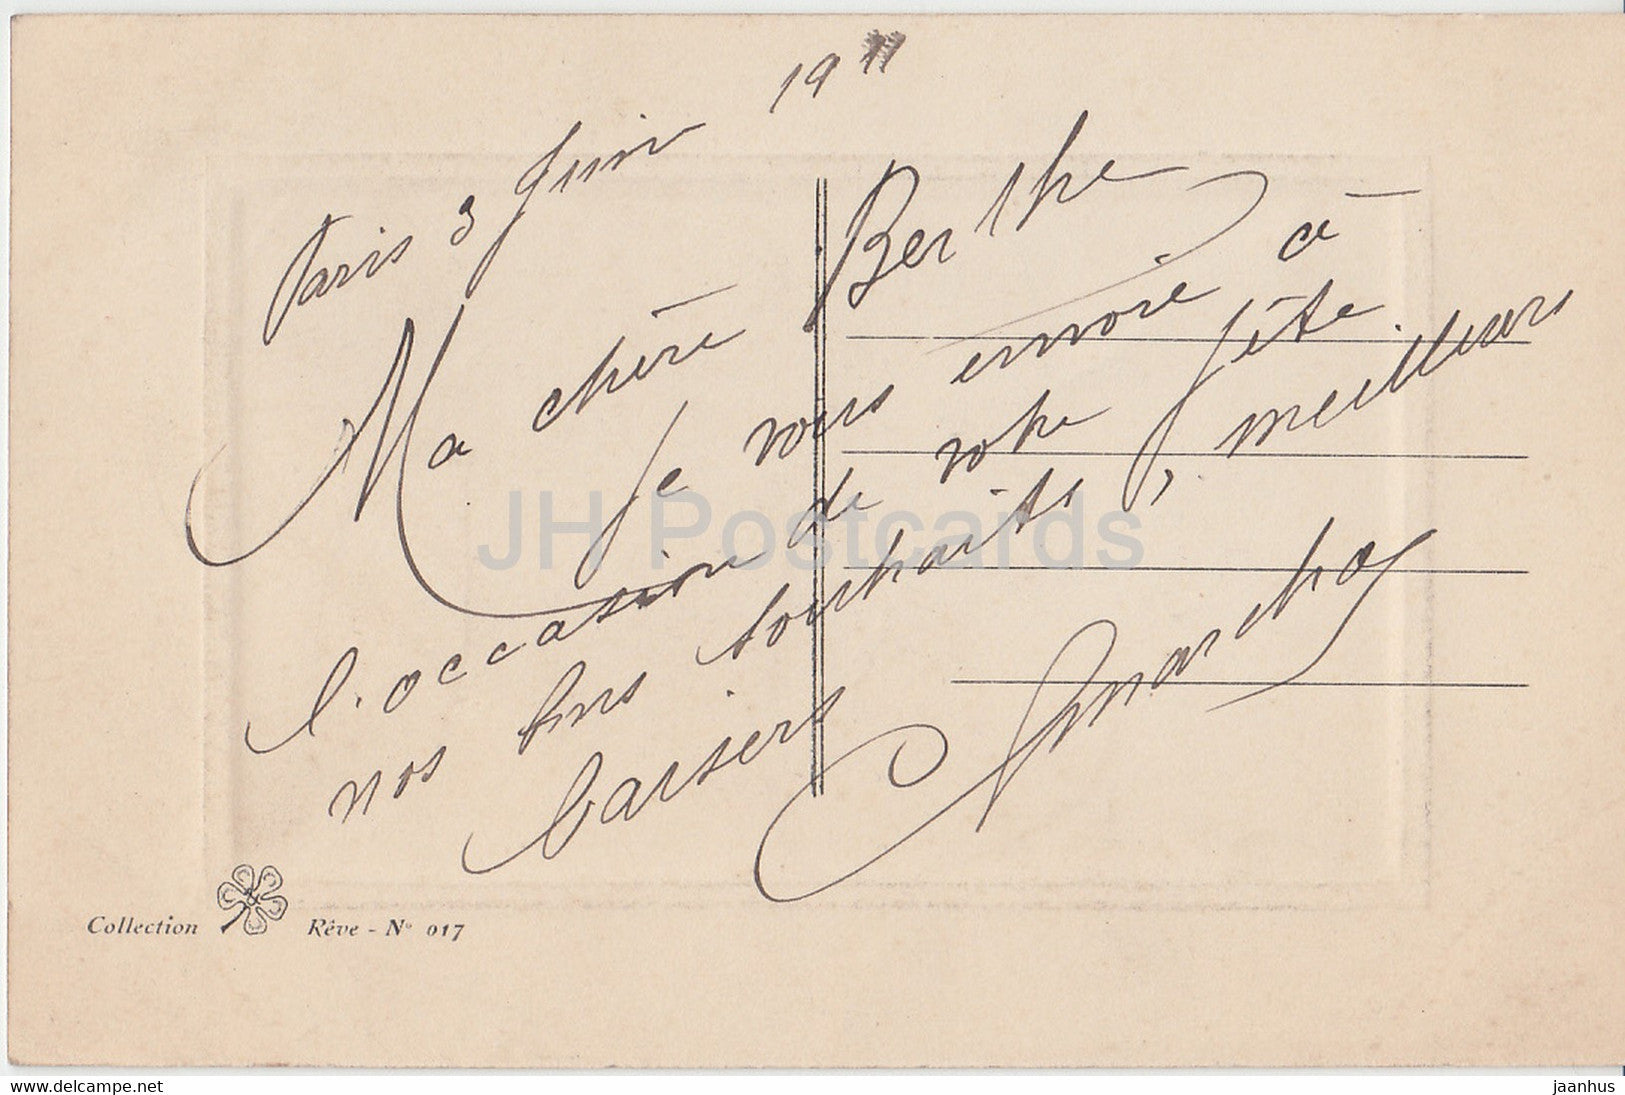 Paris 3 Juin 1911
Ma chère Berthe
Je vous envoie à
l'occasion de votre fête
nos bons souhaits, meilleurs
baisers
JH Postcards
Collection Rêve - N° 017
www.delcampe.net
jaanhus